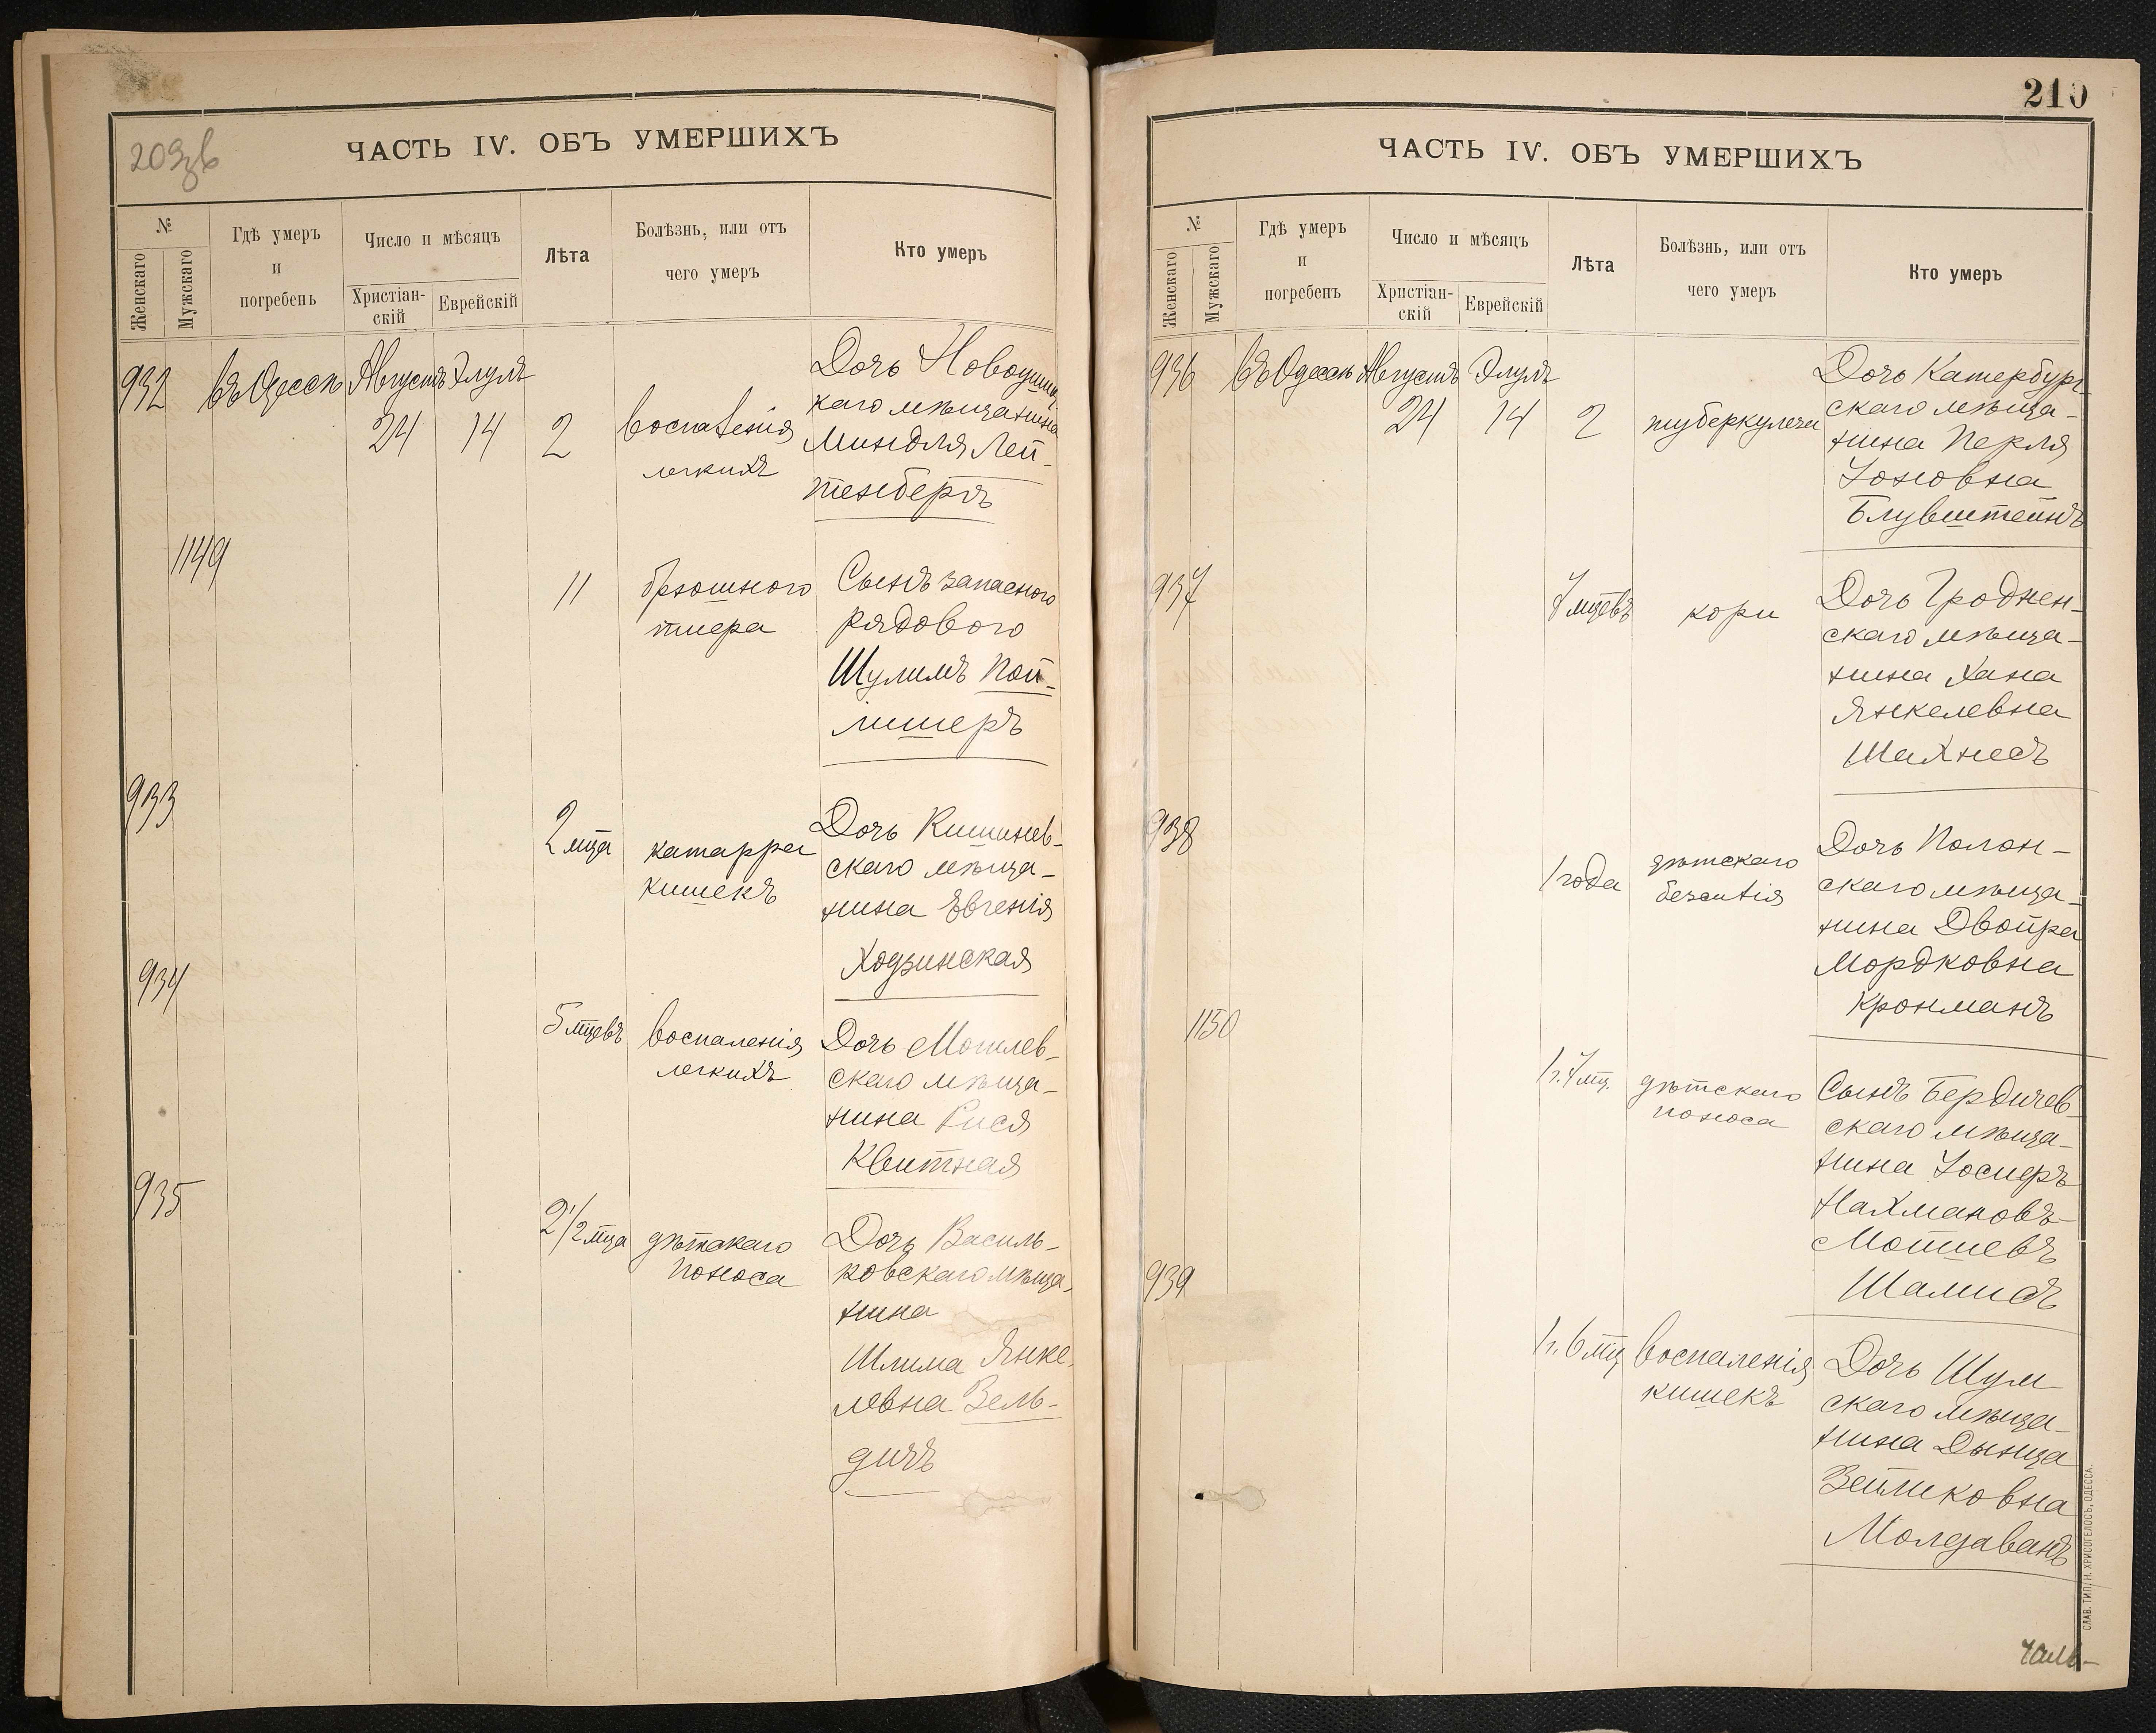 209зв
ЧАСТЬ IV. ОБЪ УМЕРШИХЪ
№
Женскаго
Мужскаго
Гдѣ умеръ
и
погребенъ
Число и мѣсяцъ
Христіан-
скій
Еврейскій
Лѣта
Болѣзнь, или отъ
чего умеръ
Кто умеръ
932 въ Одессѣ Августъ Элулъ
24 14 2
воспаленія
легкихъ
Дочь Новоушиц
каго мѣщанина
Миндля Лей-
тенбергъ
1149
11
брюшного
тифа
Сынъ запасного
рядового
Шулимъ Пой-
лишеръ
933
2 мца
катарра
кишекъ
Дочь Кишинев-
скаго мѣща-
нина Евгенія
Ходзинская
934
5 мцевъ
воспаленія
легкихъ
Дочь Могилев-
скаго мѣща-
нина Рися
Квитная
935
2 1/2 мца
дѣтскаго
поноса
Дочь Василь-
ковскаго мѣща-
нина
Шлима Янке-
левна Зель-
дичъ
210
ЧАСТЬ IV. ОБЪ УМЕРШИХЪ
№
Женскаго
Мужскаго
Гдѣ умеръ
и
погребенъ
Число и мѣсяцъ
Христіан-
скій
Еврейскій
Лѣта
Болѣзнь, или отъ
чего умеръ
Кто умеръ
936 въ Одессѣ Августъ Элулъ
24 14 2
туберкулеза
Дочь Катербург-
скаго мѣща-
нина Перля
Іоновна
Блувштейнъ
937
7 мцевъ
кори
Дочь Гроднен-
скаго мѣща-
нина Хана
Янкелевна
Шахнесъ
938
1 года
дѣтскаго
безсилія
Дочь Полон-
скаго мѣща-
нина Двойра
Мордковна
Кронманъ
1150
1 г. 7 мц.
дѣтскаго
поноса
Сынъ Бердичев-
скаго мѣща-
нина Іосифъ
Нахмановъ-
Мошиевъ
Шамисъ
939
1 г. 6 мц
воспаленія
кишекъ
Дочь Шум
скаго мѣща-
нина Дынца
Зейликовна
Молдаванъ
СЛАВ. ТИП. Н. ХРИСОГЕЛОСЪ, ОДЕССА.